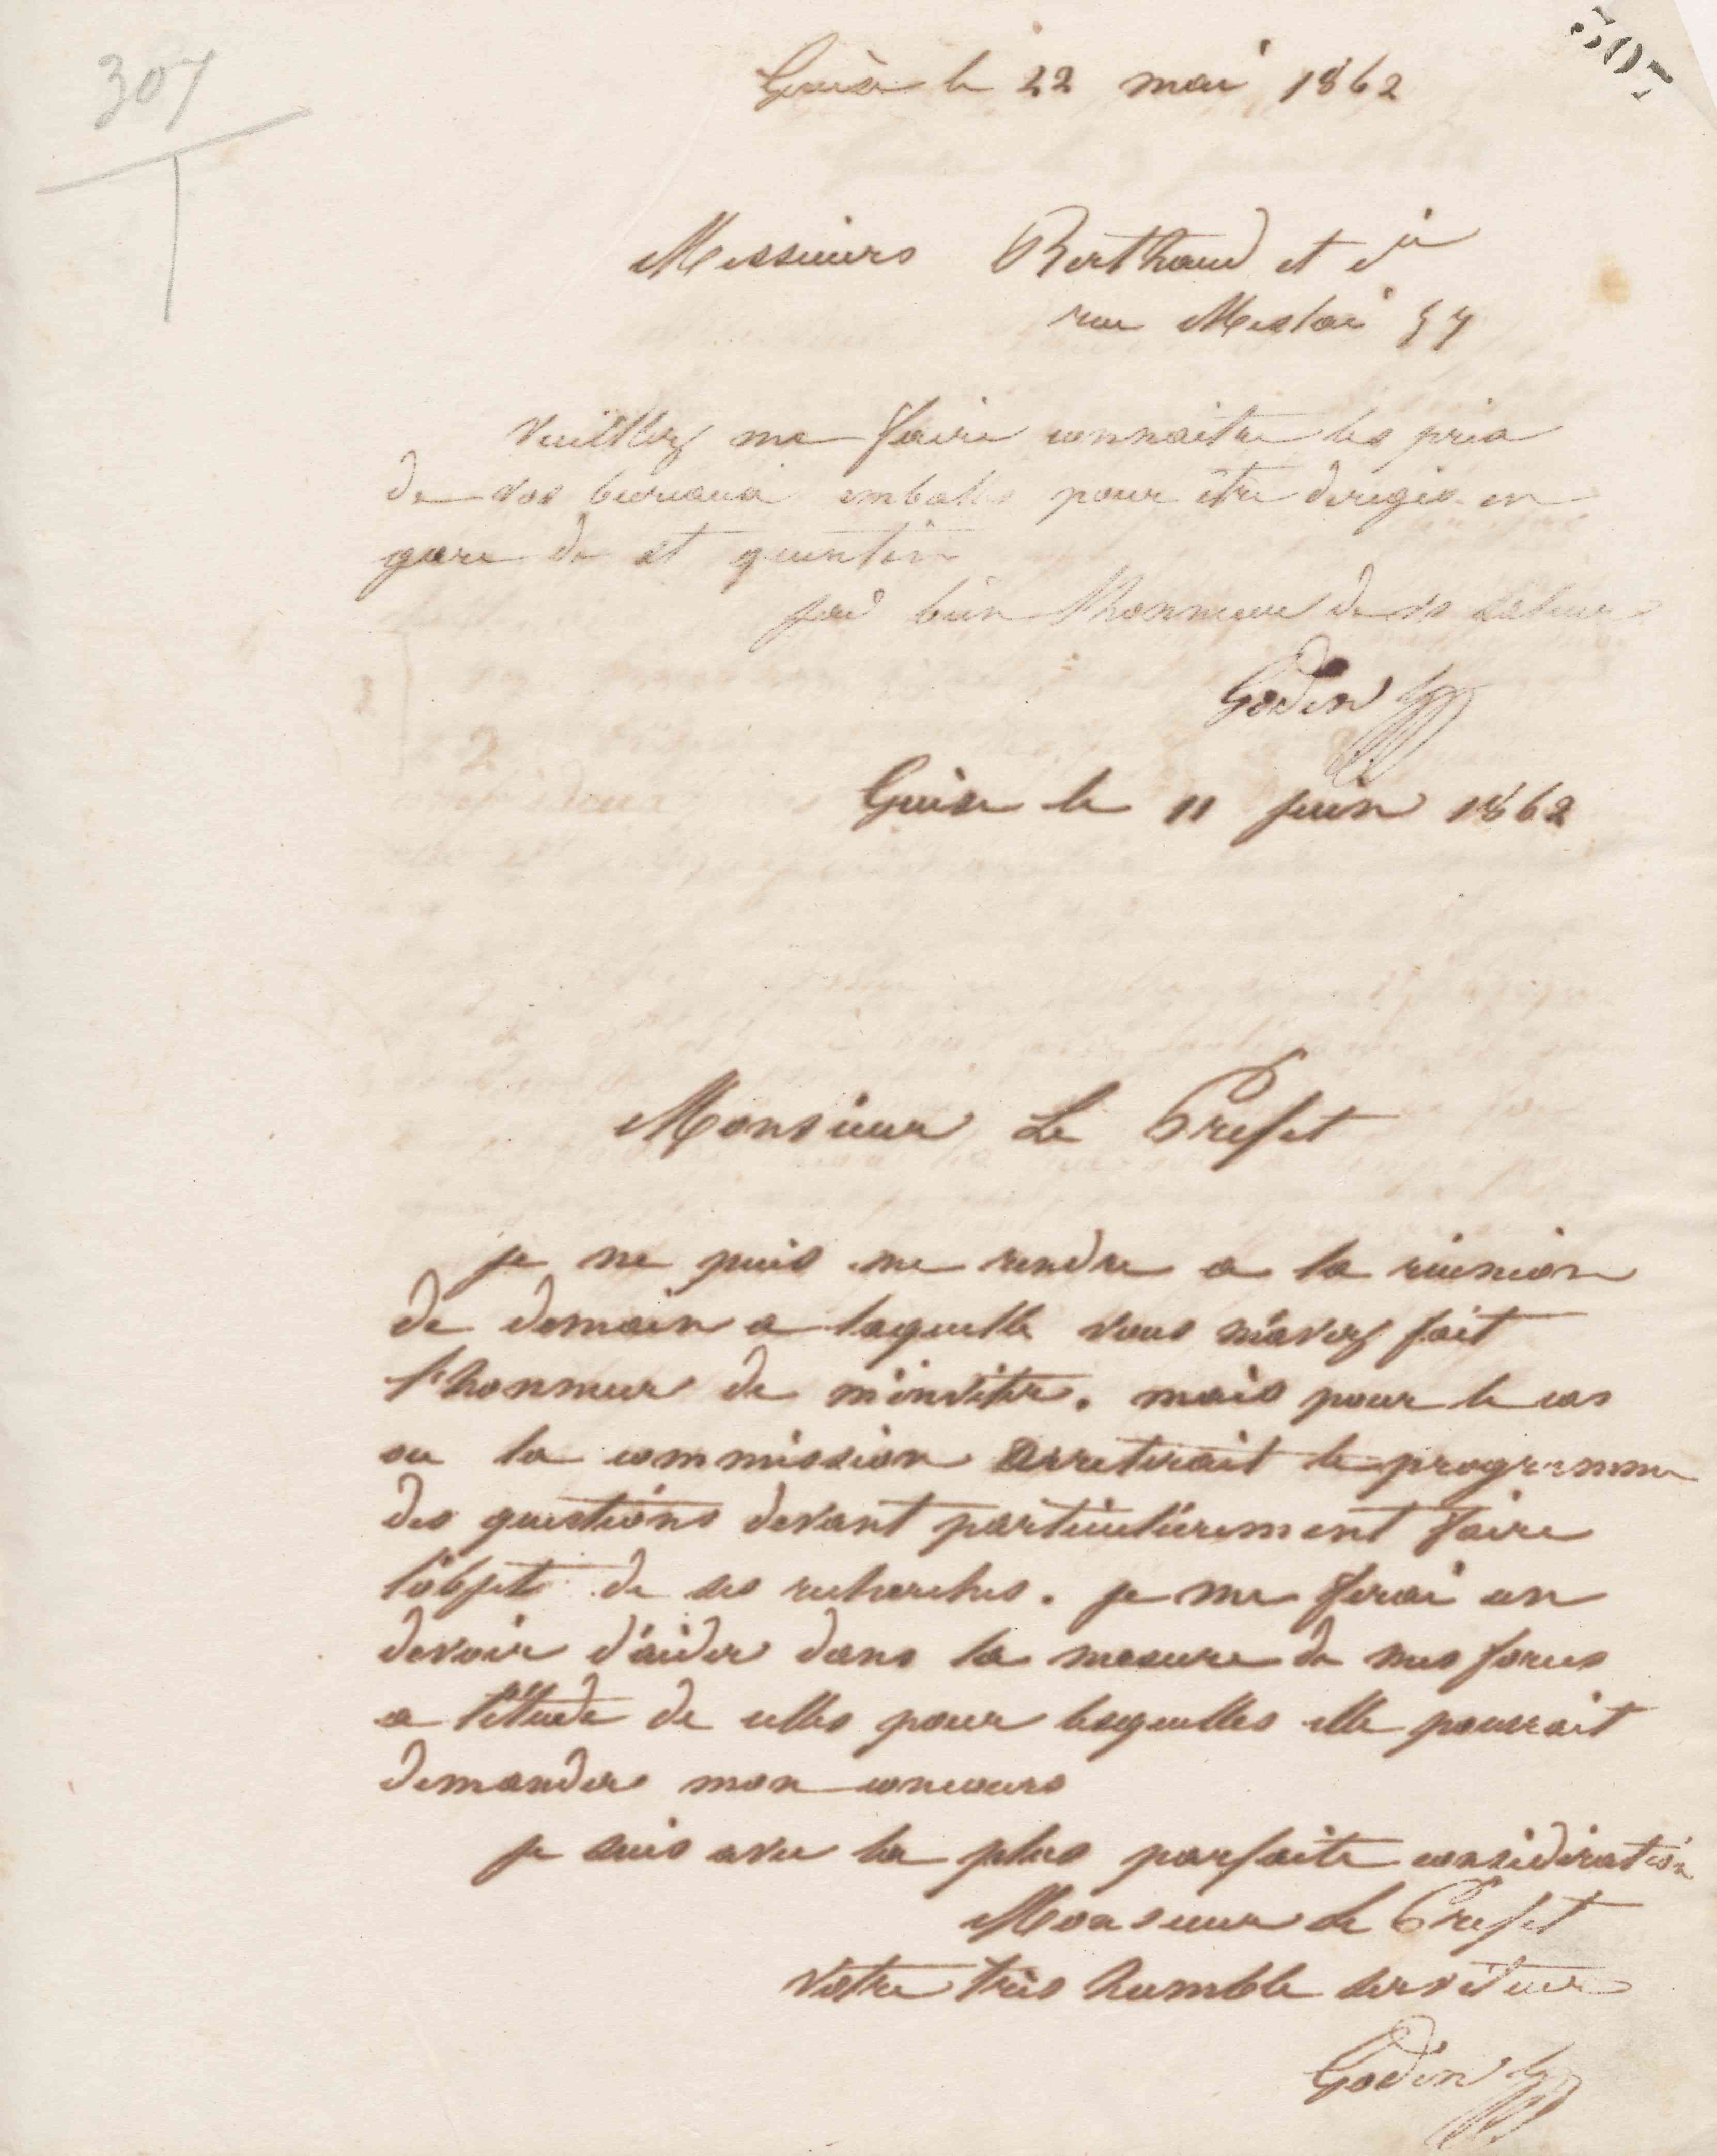 307
307
Guise le 22 mai 1862
Messieurs Berthaud et Cie
rue Meslai 57
Veuillez me faire connaitre les prix
de vos bureaux emballés pour être dirigés en
gare de st quentin
jai bien l'honneur de vs saluer
Godin
Guise le 11 juin 1862
Monsieur Le Prefet
je ne puis me rendre a la réunion
de demain a laquelle vous m'avez fait
l'honneur de m'inviter. mais pour le cas
ou la commission arreterait le programme
des questions devant particulièrement faire
l'objet de ses recherches. je me ferai un
devoir d'aider dans la mesure de mes forces
a l'étude de celles pour lesquelles elle pourrait
demander mon concours
je suis avec la plus parfaite considération
Monsieur Le Prefet
Votre très humble serviteur
Godin